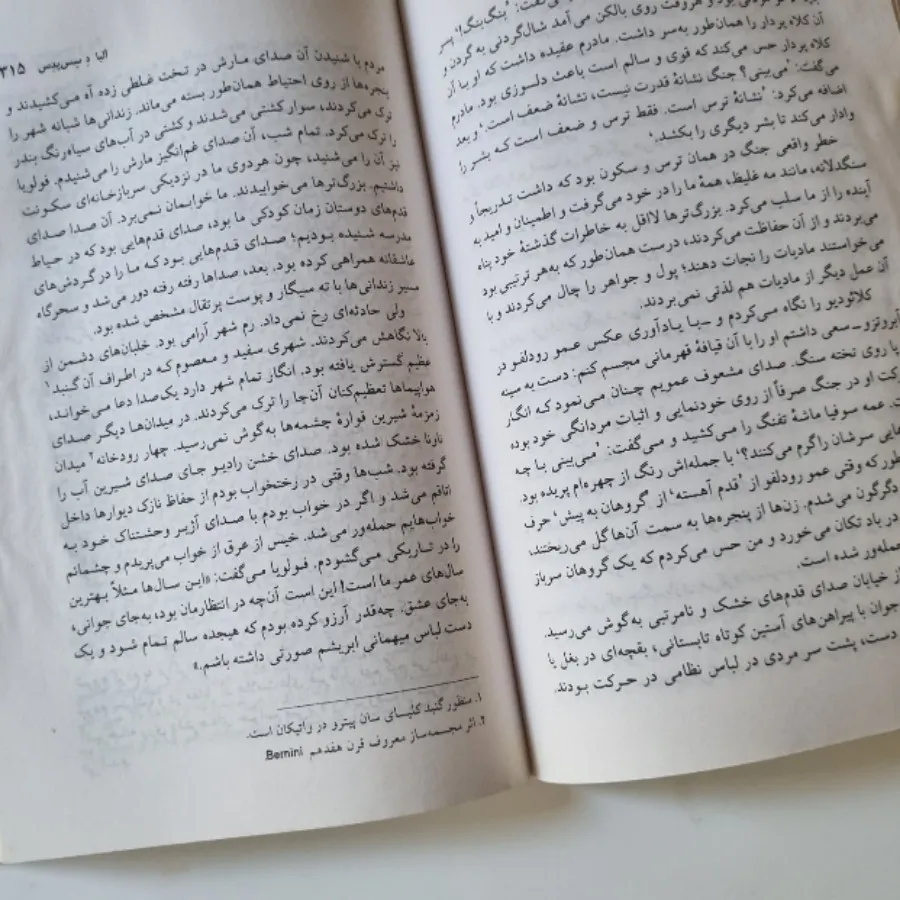 می‌گفت: 'پنگ‌پنگ!' پسر
و هروقت روی بالکن می‌آمد شال‌گردنی به گردن و
آن کلاه پردار را همان‌طور به‌سر داشت. مادرم عقیده داشت که او با آن
کلاه پردار حس می‌کند که قوی و سالم است باعث دلسوزی بود. مادرم
می‌گفت: 'می‌بینی؟ جنگ نشانهٔ قدرت نیست، نشانهٔ ضعف است.' و بعد
اضافه می‌کرد: 'نشانهٔ ترس است. فقط ترس و ضعف است که بشر را
وادار می‌کند تا بشر دیگری را بکشد.'
خطر واقعی جنگ در همان ترس و سکون بود که داشت تدریجاً و
سنگدلانه، مانند مه غلیظ، همهٔ ما را در خود می‌گرفت و اطمینان و امید به
آینده را از ما سلب می‌کرد. بزرگ‌ترها لااقل به خاطرات گذشتهٔ خود پناه
می‌بردند و از آن حفاظت می‌کردند، درست همان‌طور که به‌هر ترتیبی بود
می‌خواستند مادیات را نجات دهند؛ پول و جواهر را چال می‌کردند و با
آن عمل دیگر از مادیات هم لذتی نمی‌بردند.
کلائودیو را نگاه می‌کردم و ـ با یادآوری عکس عمو رودلفو در
آبروتزو ـ سعی داشتم او را با آن قیافهٔ قهرمانی مجسم کنم: دست به سینه
پا روی تخته سنگ. صدای مشعوف عمویم چنان می‌نمود که انگار
رکت او در جنگ صرفاً از روی خودنمایی و اثبات مردانگی خود بوده
ت. عمه سوفیا ماشهٔ تفنگ را می‌کشید و می‌گفت: 'می‌بینی با چه
هایی سرشان را گرم می‌کنند؟' با جمله‌اش رنگ از چهره‌ام پریده بود.
طور که وقتی عمو رودلفو از 'قدم آهسته' از 'گروهان به پیش' حرف
دگرگون می‌شدم. زن‌ها از پنجره‌ها به سمت آن‌ها گل می‌ریختند،
در باد تکان می‌خورد و من حس می‌کردم که یک گروهان سرباز
حمله‌ور شده است.
از خیابان صدای قدم‌های خشک و نامرتبی به‌گوش می‌رسید.
جوان با پیراهن‌های آستین کوتاه تابستانی، بقچه‌ای در بغل یا
دست، پشت سر مردی در لباس نظامی در حرکت بودند.
البا و بیس‌پیس ۳۱۵
مردم با شنیدن آن صدای مارش در تخت غلطی زده آه می‌کشیدند و
پنجره‌ها از روی احتیاط همان‌طور بسته می‌ماند. زندانی‌ها شبانه شهر را
ترک می‌کردند، سوار کشتی می‌شدند و کشتی در آب‌های سیاه‌رنگ بندر
را ترک می‌کرد. تمام شب، آن صدای غم‌انگیز مارش را می‌شنیدم. فولویا
نیز آن را می‌شنید، چون هردوی ما در نزدیکی سربازخانه‌ای سکونت
داشتیم. بزرگ‌ترها می‌خوابیدند. ما خوابمان نمی‌برد. آن صدا صدای
قدم‌های دوستان زمان کودکی ما بود، صدای قدم‌هایی بود که در حیاط
مدرسه شنیده بودیم؛ صدای قدم‌هایی بود که ما را در گردش‌های
عاشقانه همراهی کرده بود. بعد، صداها رفته رفته دور می‌شد و سحرگاه
مسیر زندانی‌ها با ته سیگار و پوست پرتقال مشخص شده بود.
ولی حادثه‌ای رخ نمی‌داد. رم شهر آرامی بود. خلبان‌های دشمن از
بالا نگاهش می‌کردند. شهری سفید و معصوم که در اطراف آن گنبد۱
عظیم گسترش یافته بود. انگار تمام شهر دارد یک‌صدا دعا می‌خواند،
هواپیماها تعظیم‌کنان آن‌جا را ترک می‌کردند. در میدان‌ها دیگر صدای
زمزمهٔ شیرین فوارهٔ چشمه‌ها به‌گوش نمی‌رسید. چهار رودخانه۲ میدان
ناونا خشک شده بود. صدای خشن رادیو جای صدای شیرین آب را
گرفته بود. شب‌ها وقتی در رختخواب بودم از حفاظ نازک دیوارها داخل
اتاقم می‌شد و اگر در خواب بودم با صدای آژیر وحشتناک خود به
خواب‌هایم حمله‌ور می‌شد. خیس از عرق از خواب می‌پریدم و چشمانم
را در تاریکی می‌گشودم. فولویا می‌گفت: «این سال‌ها مثلاً بهترین
سال‌های عمر ما است! این است آن‌چه در انتظارمان بود، به‌جای جوانی،
به‌جای عشق. چه‌قدر آرزو کرده بودم که هیجده سالم تمام شود و یک
دست لباس میهمانی ابریشم صورتی داشته باشم.»
۱. منظور گنبد کلیسای سان پیترو در واتیکان است.
۲. اثر مجسمه‌ساز معروف قرن هفدهم Bernini.